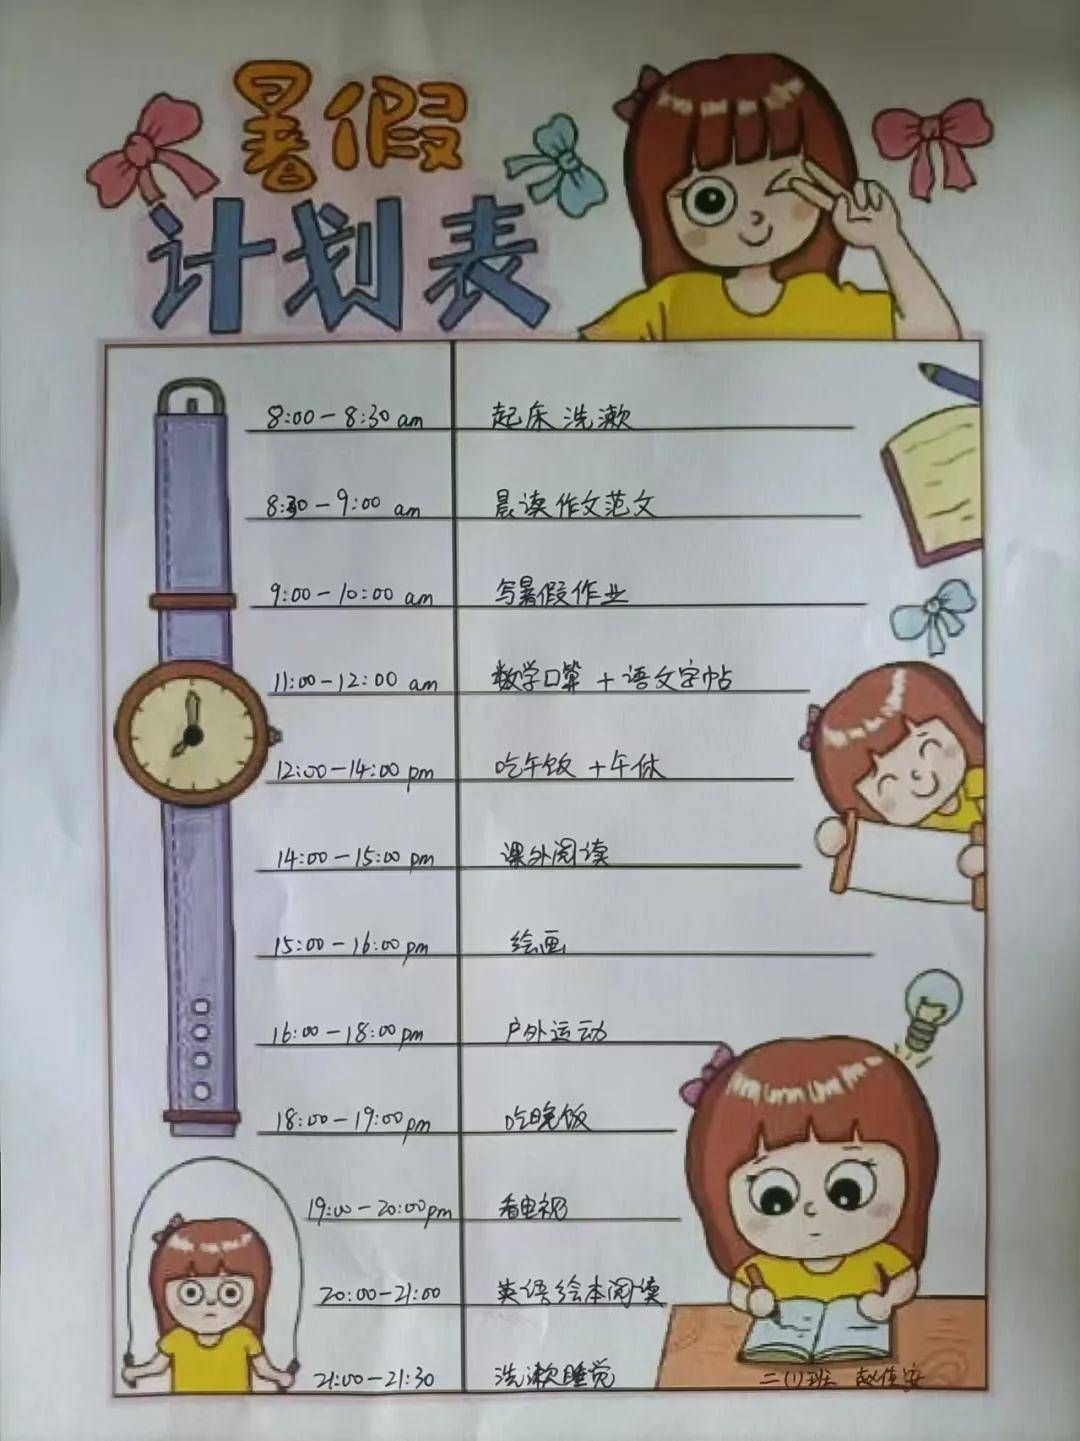 暑假
计划表
8:00－8:30 am 起床 洗漱
8:30－9:00 am 晨读作文范文
9:00－10:00 am 写暑假作业
11:00－12:00 am 数学口算 + 语文字帖
12:00－14:00 pm 吃午饭 + 午休
14:00－15:00 pm 课外阅读
15:00－16:00 pm 绘画
16:00－18:00 pm 户外运动
18:00－19:00 pm 吃晚饭
19:00－20:00 pm 看电视
20:00－21:00 英语绘本阅读
21:00－21:30 洗漱睡觉
二(1)班 赵佳安